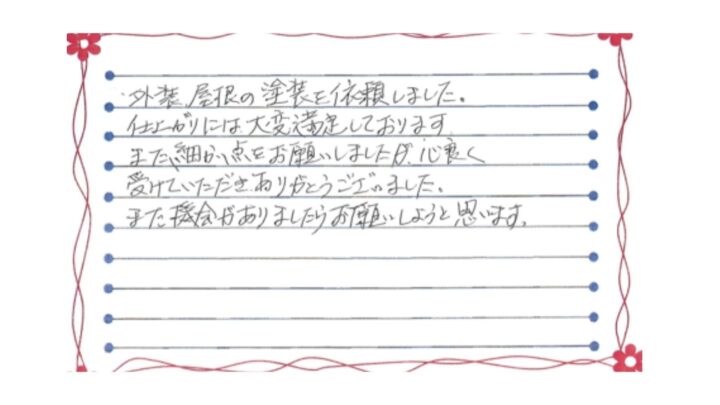 外装、屋根の塗装を依頼しました。
仕上がりには大変満足しております
また、細かい点をお願いしましたが、心良く
受けていただきありがとうございました。
また機会がありましたらお願いしようと思います。